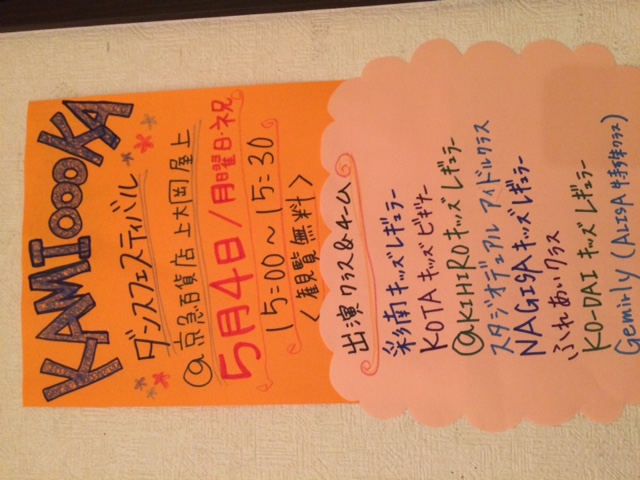 KAMIoooKA
ダンスフェスティバル
@京急百貨店 上大岡屋上
5月4日/月曜日・祝
15:00〜15:30
〈観覧無料〉
出演クラス&チーム
彩南キッズレギュラー
KOTAキッズビギナー
@KIHIROキッズレギュラー
スタジオデュアルアイドルクラス
NAGISAキッズレギュラー
ふれあいクラス
KO-DAIキッズレギュラー
Geminly(ALISA特待生クラス)